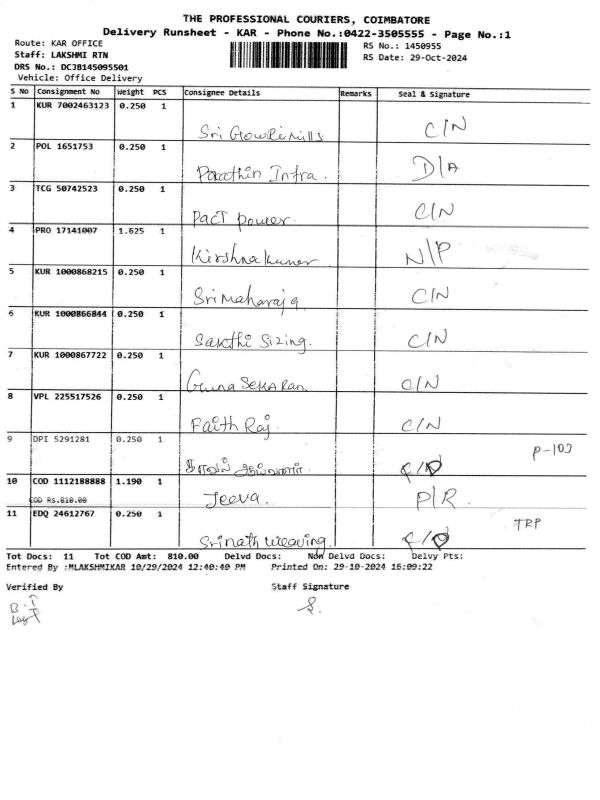 THE PROFESSIONAL COURIERS, COIMBATORE
Delivery Runsheet - KAR - Phone No.:0422-3505555 - Page No.:1
Route: KAR OFFICE
RS No.: 1450955
Staff: LAKSHMI RTN
RS Date: 29-Oct-2024
DRS No.: DCJB145095501
Vehicle: Office Delivery
S No Consignment No Weight PCS Consignee Details Remarks Seal & Signature
1 KUR 7002463123 0.250 1
Sri Gowri Mills C/N
2 POL 1651753 0.250 1
Infra. D/A
3 TCG 50742523 0.250 1
Pact power. C/N
4 PRO 17141007 1.625 1
Kirshnakumar N/P
5 KUR 1000868215 0.250 1
Sri Maharaja C/N
6 KUR 1000866844 0.250 1
Sakthi Sizing. C/N
7 KUR 1000867722 0.250 1
Guna Sekaran. C/N
8 VPL 225517526 0.250 1
Faith Raj C/N
9 DPI 5291281 0.250 1
P-103
C/D
10 COD 1112188888 1.190 1
COD Rs.810.00
Jeeva. P/R
11 EDQ 24612767 0.250 1
TRP
Srinath weaving. C/D
Tot Docs: 11 Tot COD Amt: 810.00 Delvd Docs: Non Delvd Docs: Delvy Pts:
Entered By :MLAKSHMIKAR 10/29/2024 12:40:40 PM Printed On: 29-10-2024 16:09:22
Verified By Staff Signature